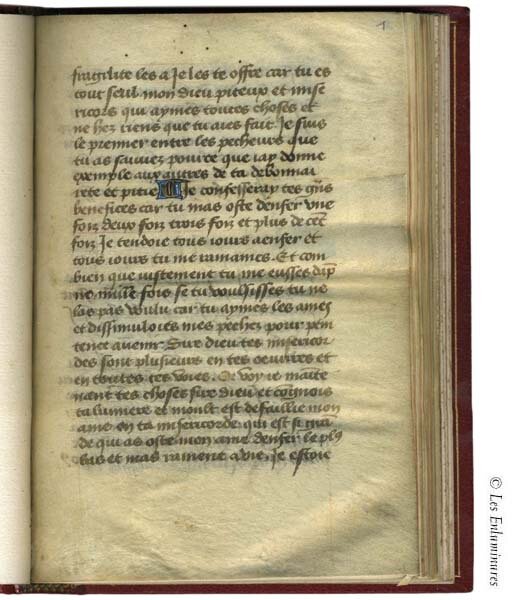 1
fragilite les a Je les te offre car tu es
tout seul mon dieu piteux et mise
ricors qui aymes toutes choses et
ne hez riens que tu aies fait. Je suis
le premier entre les pecheurs que
tu as sauvez pource que iay donne
exemple aux autres de ta debonnai
rete et pitie Je confesseray tes gñs
benefices car tu mas oste denfer vne
foiz deux foiz trois foiz et plus de cēt
foiz Je tendoie tous iours a enfer et
tous iours tu me ramaines. Et com
bien que iustement tu me eusses dāp
ne mille fois se tu voulsisses tu ne
las pas voulu car tu aymes les ames
et dissimuloies mes pechez pour peni
tence auenir Sire dieu tes misericor
des sont plusieurs en tes oeuures et
en toutes tes voies. Or voy ie mainte
nant tes choses sire dieu et cōgnois
ta lumiere et moult est defaillie mon
ame en ta misericorde qui est si grā
de qui as oste mon ame denfer le plꝰ
bas et mas ramene a vie. Je estoie
© Les Enluminures